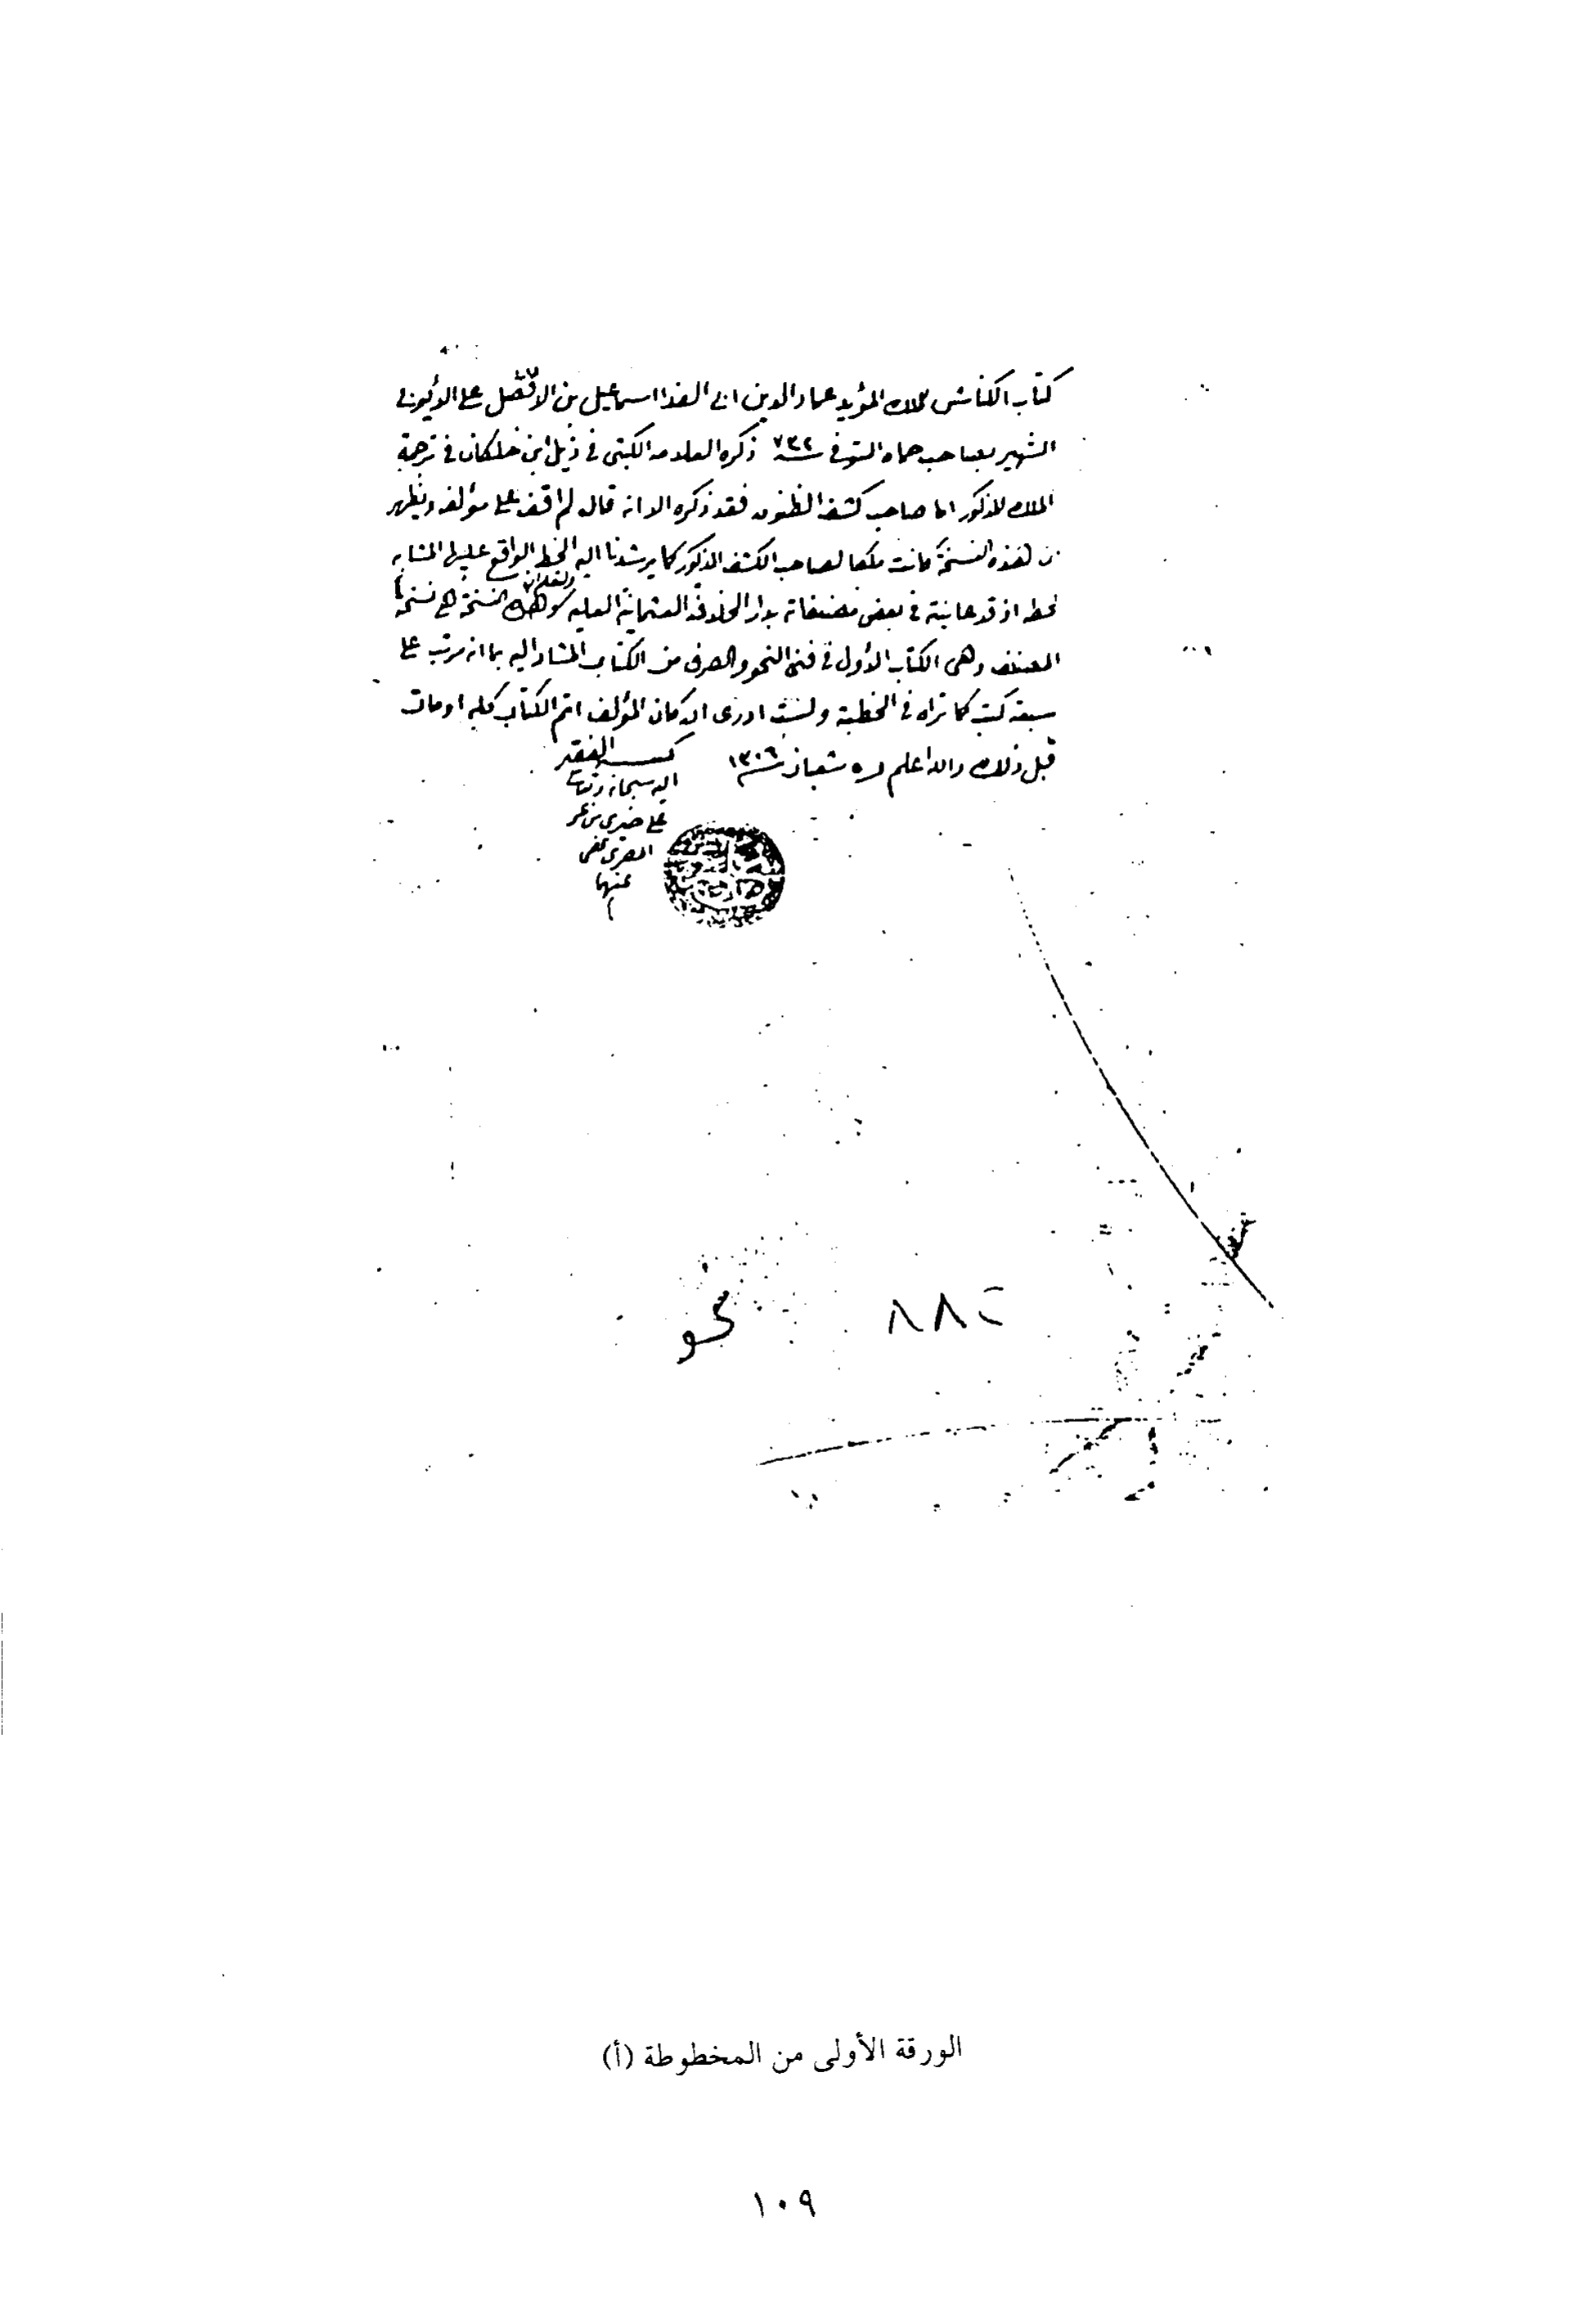 كتاب الكناش للملك المؤيد عماد الدين ابى الفدا اسماعيل بن الافضل على الايوبى
الشهير بصاحب حماه المتوفى سنة ٧٣٢ ذكره العلامه الكتبى فى ذيل ابن خلكان فى ترجمة
الملك المذكور اما صاحب كشف الظنون فقد ذكره الا انه قال لم اقف على مؤلفه ويظهر
ان هذه النسخة كانت ملكا لصاحب الكشف المذكور كما يرشدنا اليه الخط الواقع عليها المشابه
لخطه اذ قد عاينته فى بعض مصنفاته بدار الخلافة العثمانية العليه وهذه النسخة هى نسخة
المصنف وهى الكتاب الأول فى فنى النحو والصرف من الكتاب المشار اليه بما انه مرتب على
سبعة كتب كما تراه فى الخطبة ولست ادرى اكان المؤلف اتم الكتاب كله او مات
قبل ذلك والله اعلم شعبان سنة ١٣٠٦
كتبه الفقير
اليه سبحانه وتعالى
على خيرى بن عمر
المصرى عفى
عنهما
٨٨٢ نحو
الورقة الأولى من المخطوطة (أ)
١٠٩